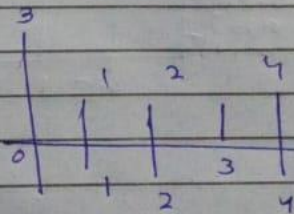 3
1 2 4
0 3
1 2 4